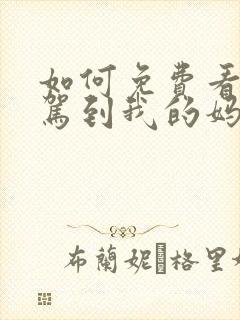 如何免費看
駕到我的媽
布蘭妮·格里